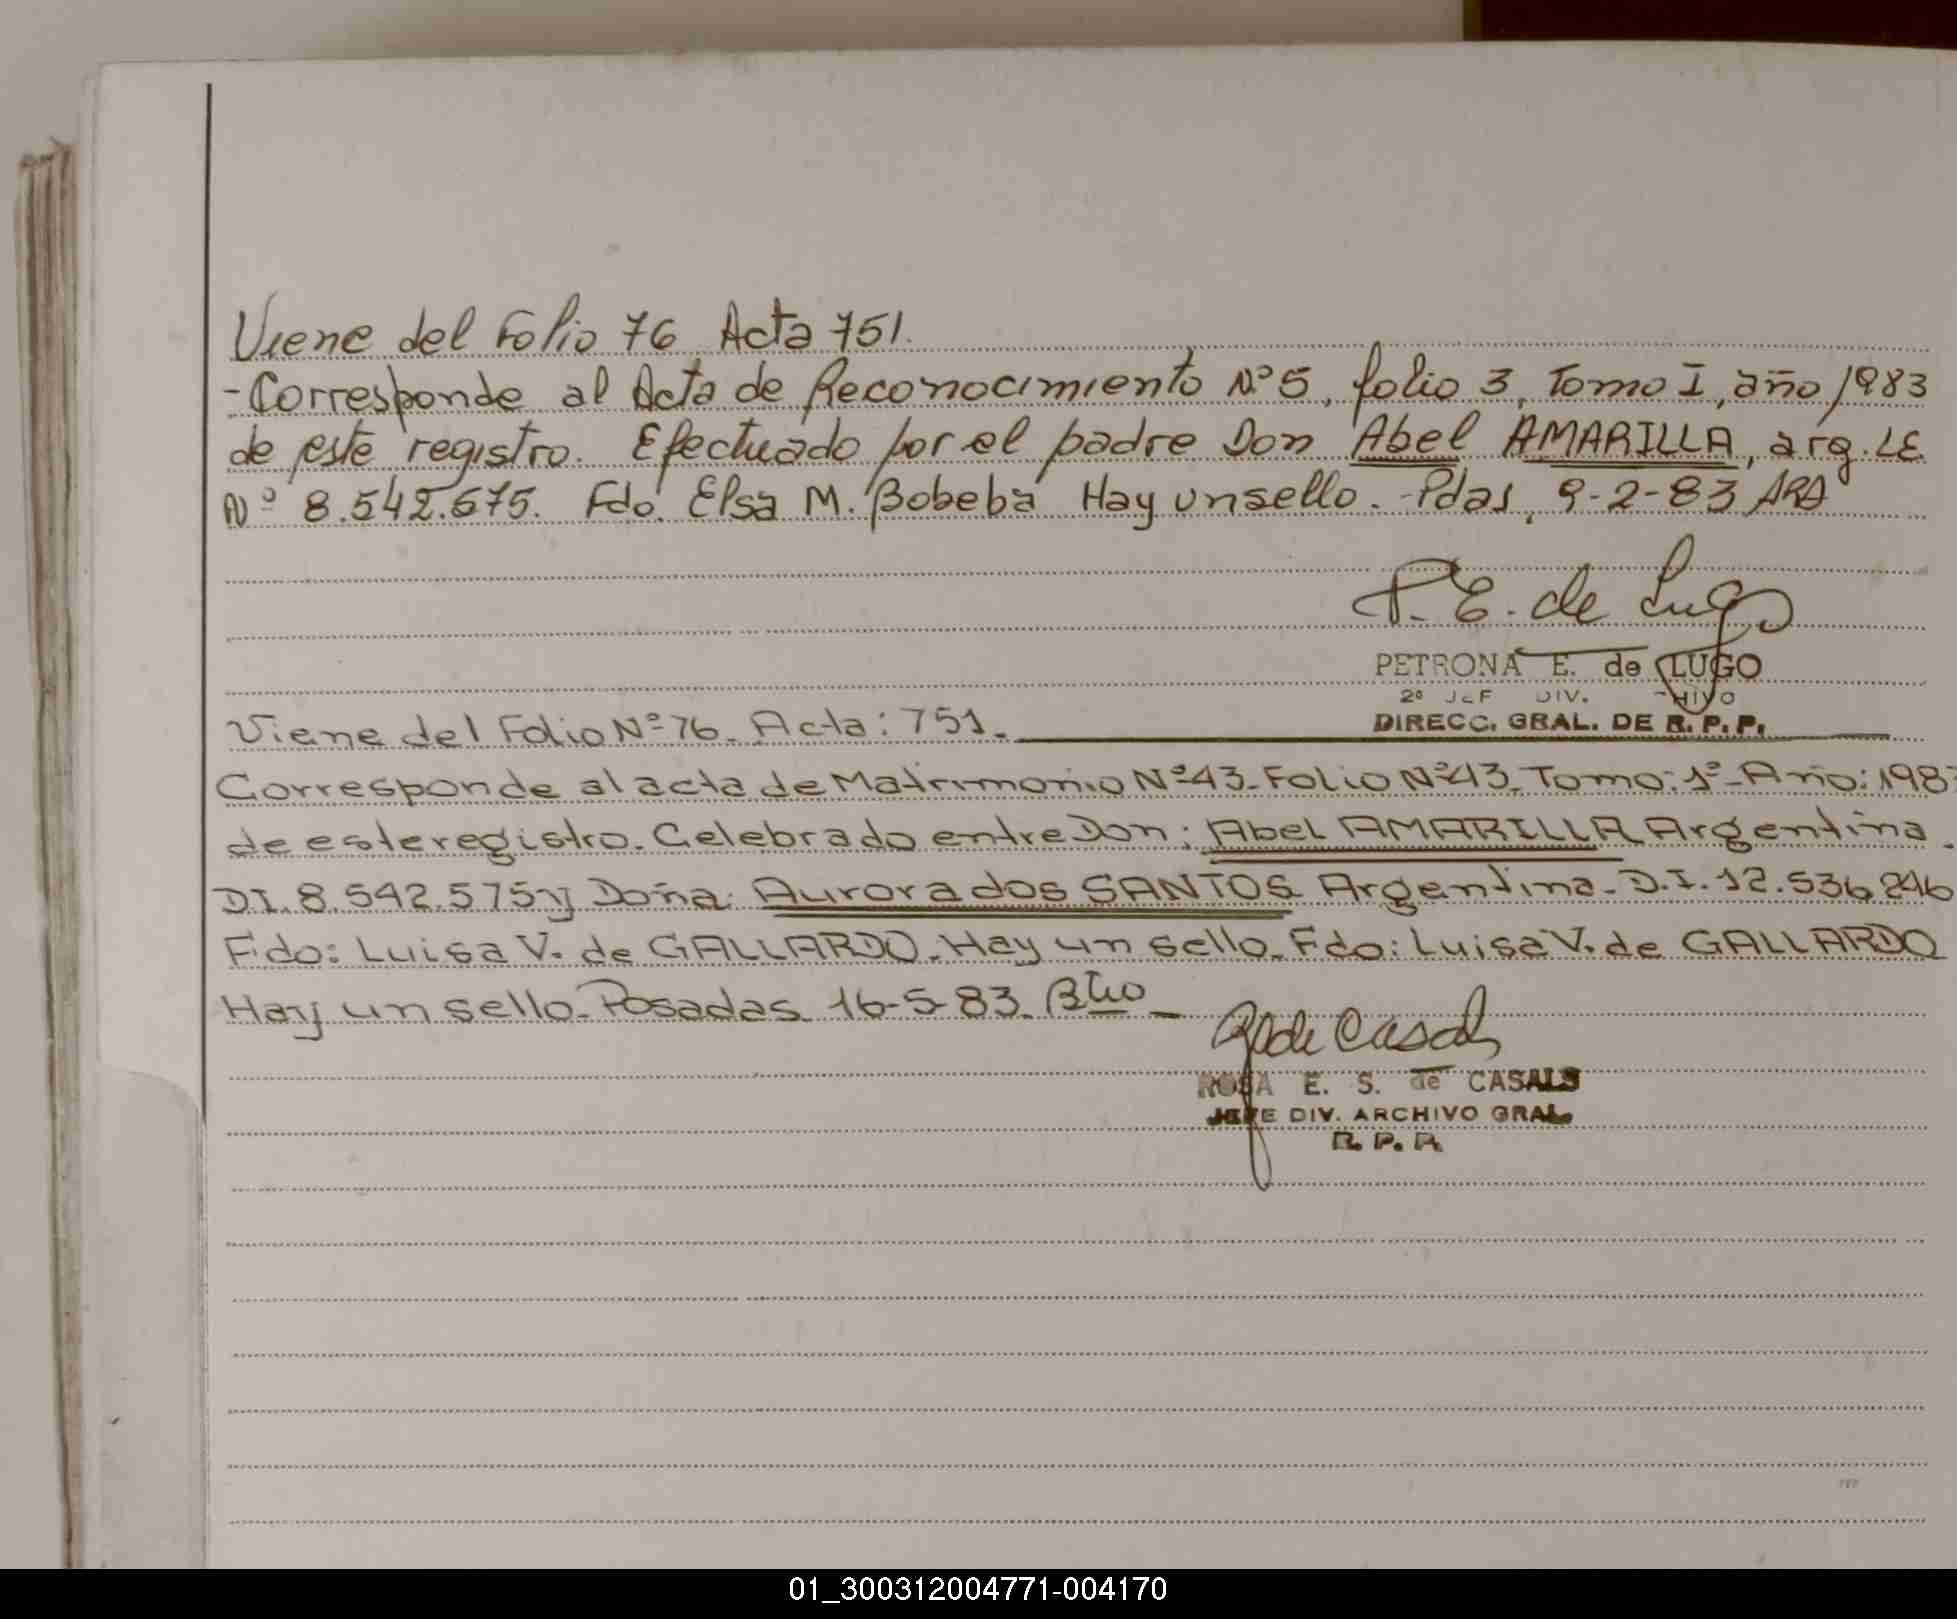 Viene del Folio 76 Acta 751.
-Corresponde al Acta de Reconocimiento Nº 5, folio 3, Tomo I, año 1983
de este registro. Efectuado por el padre Don Abel AMARILLA, arg. LE
Nº 8.542.575. Fdo. Elsa M. Bobeba Hay un sello. -Pdas, 9-2-83 ARA
P. E. de Lugo
PETRONA E. de LUGO
2º JEF DIV.
DIRECC. GRAL. DE R. P. P.
Viene del Folio Nº 76- Acta: 751.-
Corresponde al acta de Matrimonio Nº 43- Folio Nº 43- Tomo: 1º- Año: 198
de este registro. Celebrado entre Don: Abel AMARILLA Argentina.
D.I. 8.542.575 y Doña: Aurora dos SANTOS Argentina- D.I. 12.536 246
Fdo: Luisa V. de GALLARDO- Hay un sello- Fdo: Luisa V. de GALLARDO
Hay un sello- Posadas 16-5-83.
de Casals
ROSA E. S. de CASALS
JEFE DIV. ARCHIVO GRAL.
R. P. P.
01_300312004771-004170